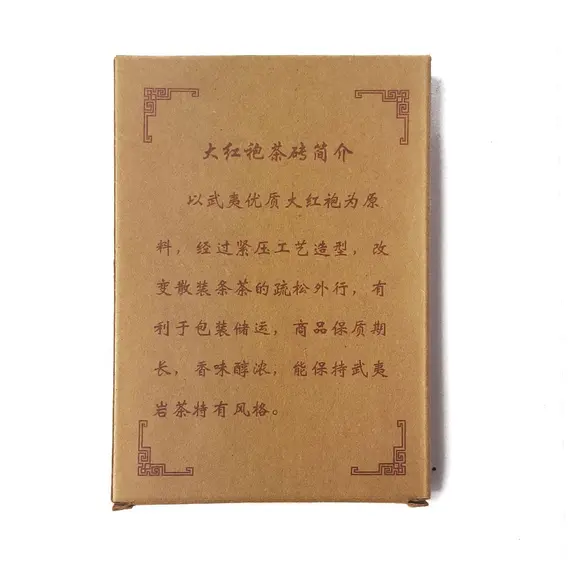 大红袍茶砖简介
以武夷优质大红袍为原
料，经过紧压工艺造型，改
变散装条茶的疏松外行，有
利于包装储运，商品保质期
长，香味醇浓，能保持武夷
岩茶特有风格。